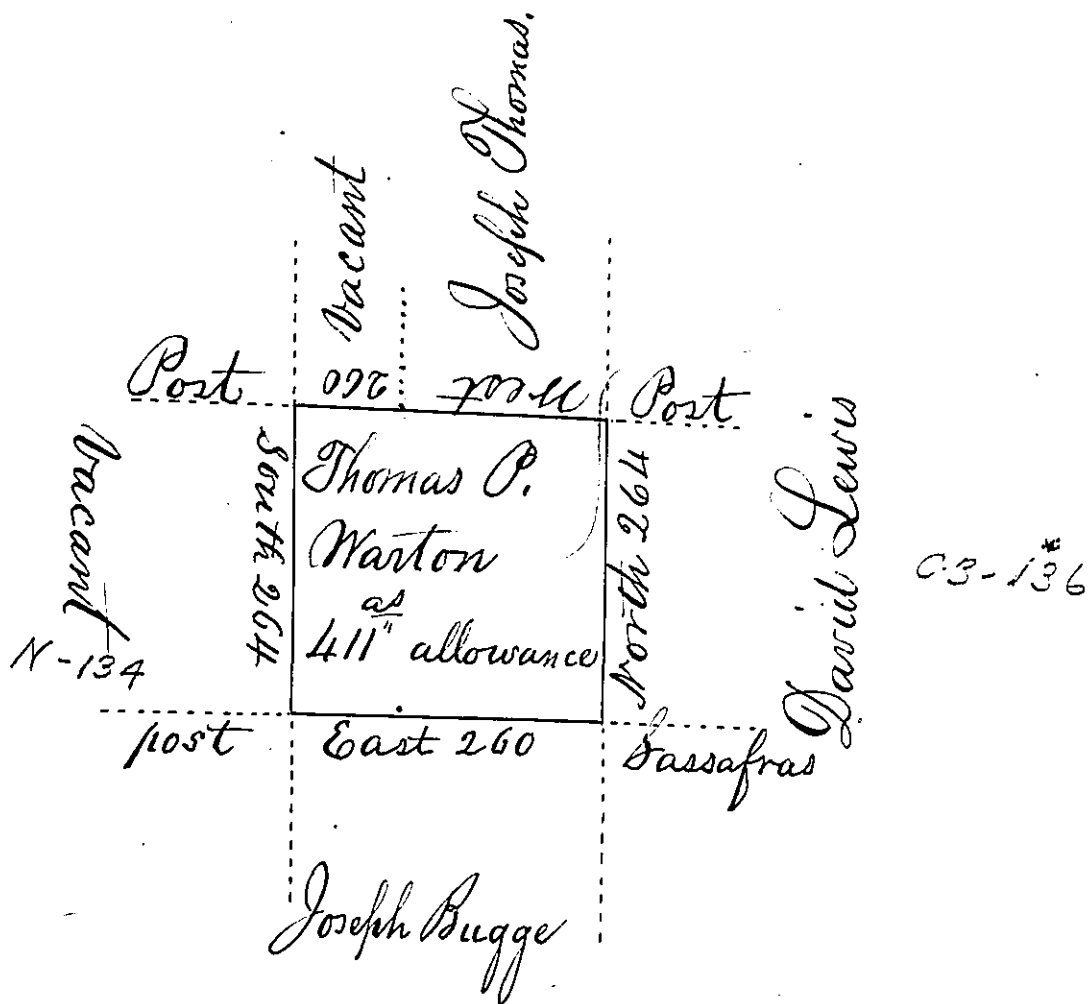 Joseph Thomas.
Vacant
Post
260
West
Post
Vacant
South 264
Thomas P.
Warton
411 as allowance
North 264
David Lewis
C3-136*
N-134
post
East 260
Sassafras
Joseph Bugge